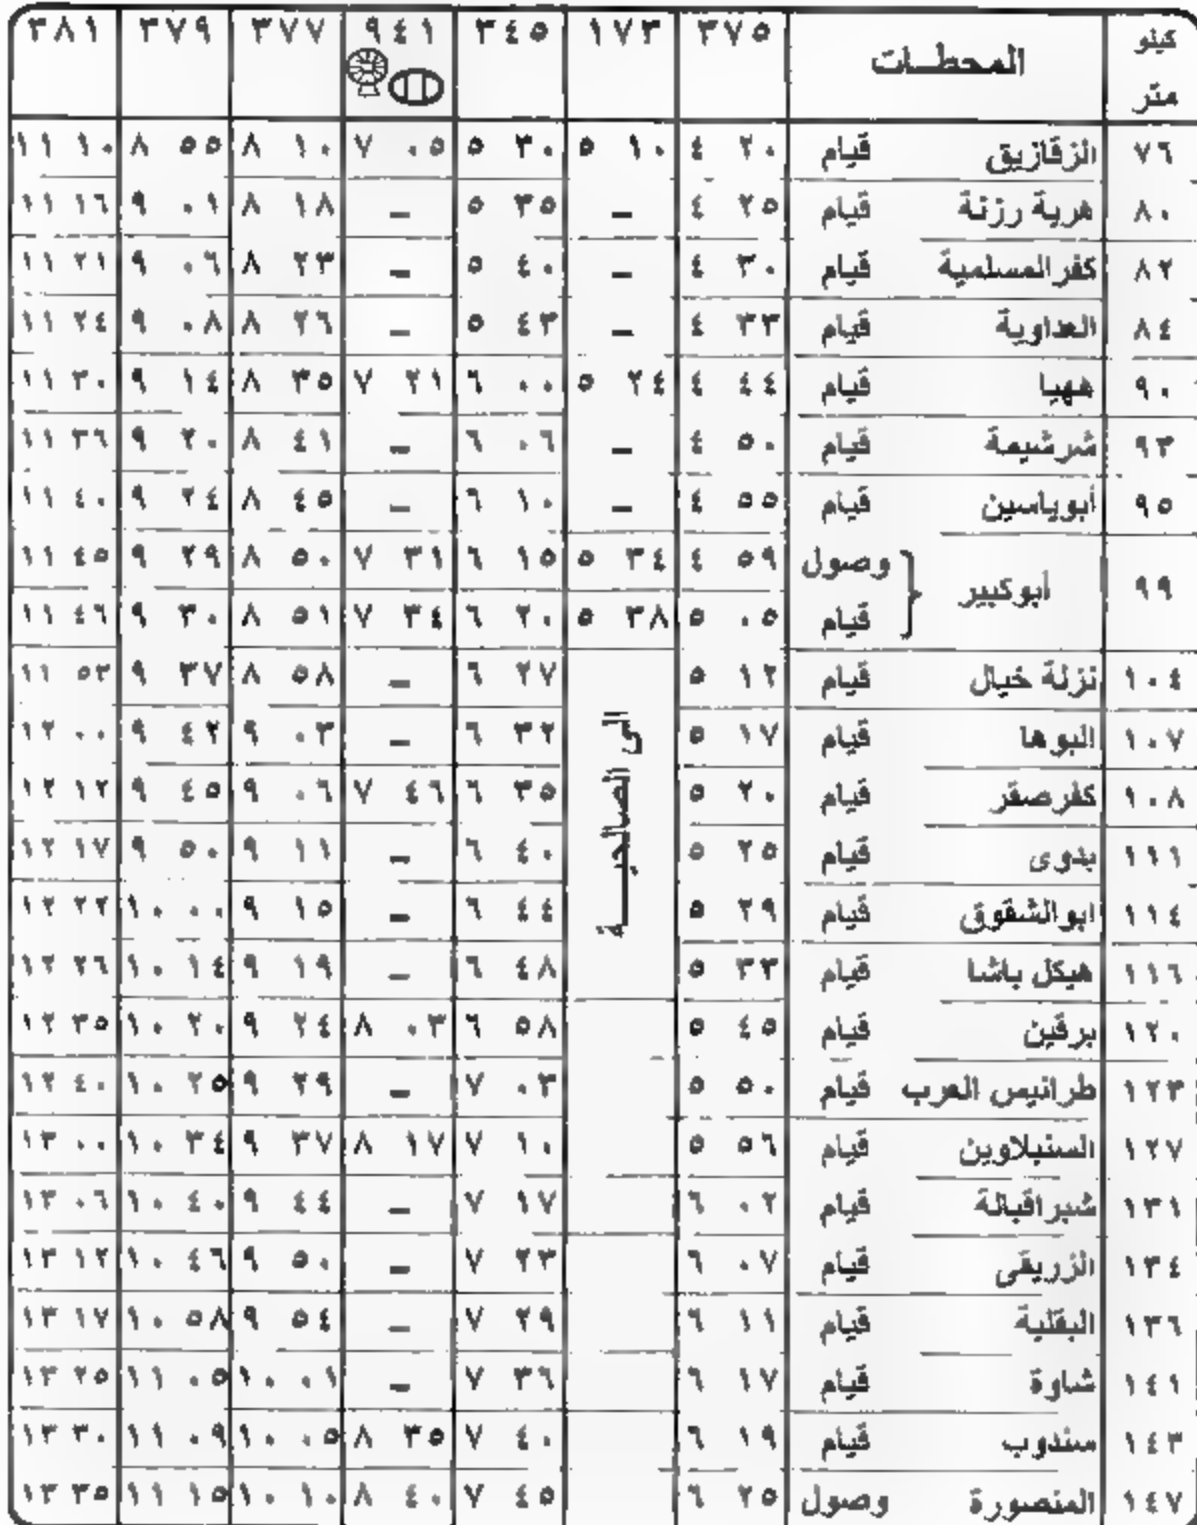 كيلو متر المحطــات ٣٧٥ ١٧٣ ٣٤٥ ٩٤١ ٣٧٧ ٣٧٩ ٣٨١
٧٦ الزقازيق قيام ٤ ٢٠ ٥ ١٠ ٥ ٣٠ ٧ ٠٥ ٨ ١٠ ٨ ٥٥ ١١ ١٠
٨٠ هرية رزنة قيام ٤ ٢٥ – ٥ ٣٥ – ٨ ١٨ ٩ ٠١ ١١ ١٦
٨٢ كفرالمسلمية قيام ٤ ٣٠ – ٥ ٤٠ – ٨ ٢٣ ٩ ٠٦ ١١ ٢١
٨٤ العداوية قيام ٤ ٣٣ – ٥ ٤٣ – ٨ ٢٦ ٩ ٠٨ ١١ ٢٤
٩٠ ههيا قيام ٤ ٤٤ ٥ ٢٤ ٦ ٠٠ ٧ ٢١ ٨ ٣٥ ٩ ١٤ ١١ ٣٠
٩٣ شرشيمة قيام ٤ ٥٠ – ٦ ٠٦ – ٨ ٤١ ٩ ٢٠ ١١ ٣٦
٩٥ أبوياسين قيام ٤ ٥٥ – ٦ ١٠ – ٨ ٤٥ ٩ ٢٤ ١١ ٤٠
٩٩ أبوكبير وصول ٤ ٥٩ ٥ ٣٤ ٦ ١٥ ٧ ٣١ ٨ ٥٠ ٩ ٢٩ ١١ ٤٥
قيام ٥ ٠٥ ٥ ٣٨ ٦ ٢٠ ٧ ٣٤ ٨ ٥١ ٩ ٣٠ ١١ ٤٦
الى الصالحيــــة
١٠٤ نزلة خيال قيام ٥ ١٢ ٦ ٢٧ – ٨ ٥٨ ٩ ٣٧ ١١ ٥٣
١٠٧ البوها قيام ٥ ١٧ ٦ ٣٢ – ٩ ٠٣ ٩ ٤٢ ١٢ ٠٠
١٠٨ كفرصقر قيام ٥ ٢٠ ٦ ٣٥ ٧ ٤٦ ٩ ٠٦ ٩ ٤٥ ١٢ ١٢
١١١ بدوى قيام ٥ ٢٥ ٦ ٤٠ – ٩ ١١ ٩ ٥٠ ١٢ ١٧
١١٤ ابوالشقوق قيام ٥ ٢٩ ٦ ٤٤ – ٩ ١٥ ١٠ ٠٠ ١٢ ٢٢
١١٦ هيكل باشا قيام ٥ ٣٣ ٦ ٤٨ – ٩ ١٩ ١٠ ١٤ ١٢ ٢٦
١٢٠ برقين قيام ٥ ٤٥ ٦ ٥٨ ٨ ٠٣ ٩ ٢٤ ١٠ ٢٠ ١٢ ٣٥
١٢٣ طرانيس العرب قيام ٥ ٥٠ ٧ ٠٣ – ٩ ٢٩ ١٠ ٢٥ ١٢ ٤٠
١٢٧ السنبلاوين قيام ٥ ٥٦ ٧ ١٠ ٨ ١٧ ٩ ٣٧ ١٠ ٣٤ ١٣ ٠٠
١٣١ شبراقبالة قيام ٦ ٠٢ ٧ ١٧ – ٩ ٤٤ ١٠ ٤٠ ١٣ ٠٦
١٣٤ الزريقى قيام ٦ ٠٧ ٧ ٢٣ – ٩ ٥٠ ١٠ ٤٦ ١٣ ١٢
١٣٦ البقلية قيام ٦ ١١ ٧ ٢٩ – ٩ ٥٤ ١٠ ٥٨ ١٣ ١٧
١٤١ شاوة قيام ٦ ١٧ ٧ ٣٦ – ١٠ ٠١ ١١ ٠٥ ١٣ ٢٥
١٤٣ سندوب قيام ٦ ١٩ ٧ ٤٠ ٨ ٣٥ ١٠ ٠٥ ١١ ٠٩ ١٣ ٣٠
١٤٧ المنصورة وصول ٦ ٢٥ ٧ ٤٥ ٨ ٤٠ ١٠ ١٠ ١١ ١٥ ١٣ ٣٥